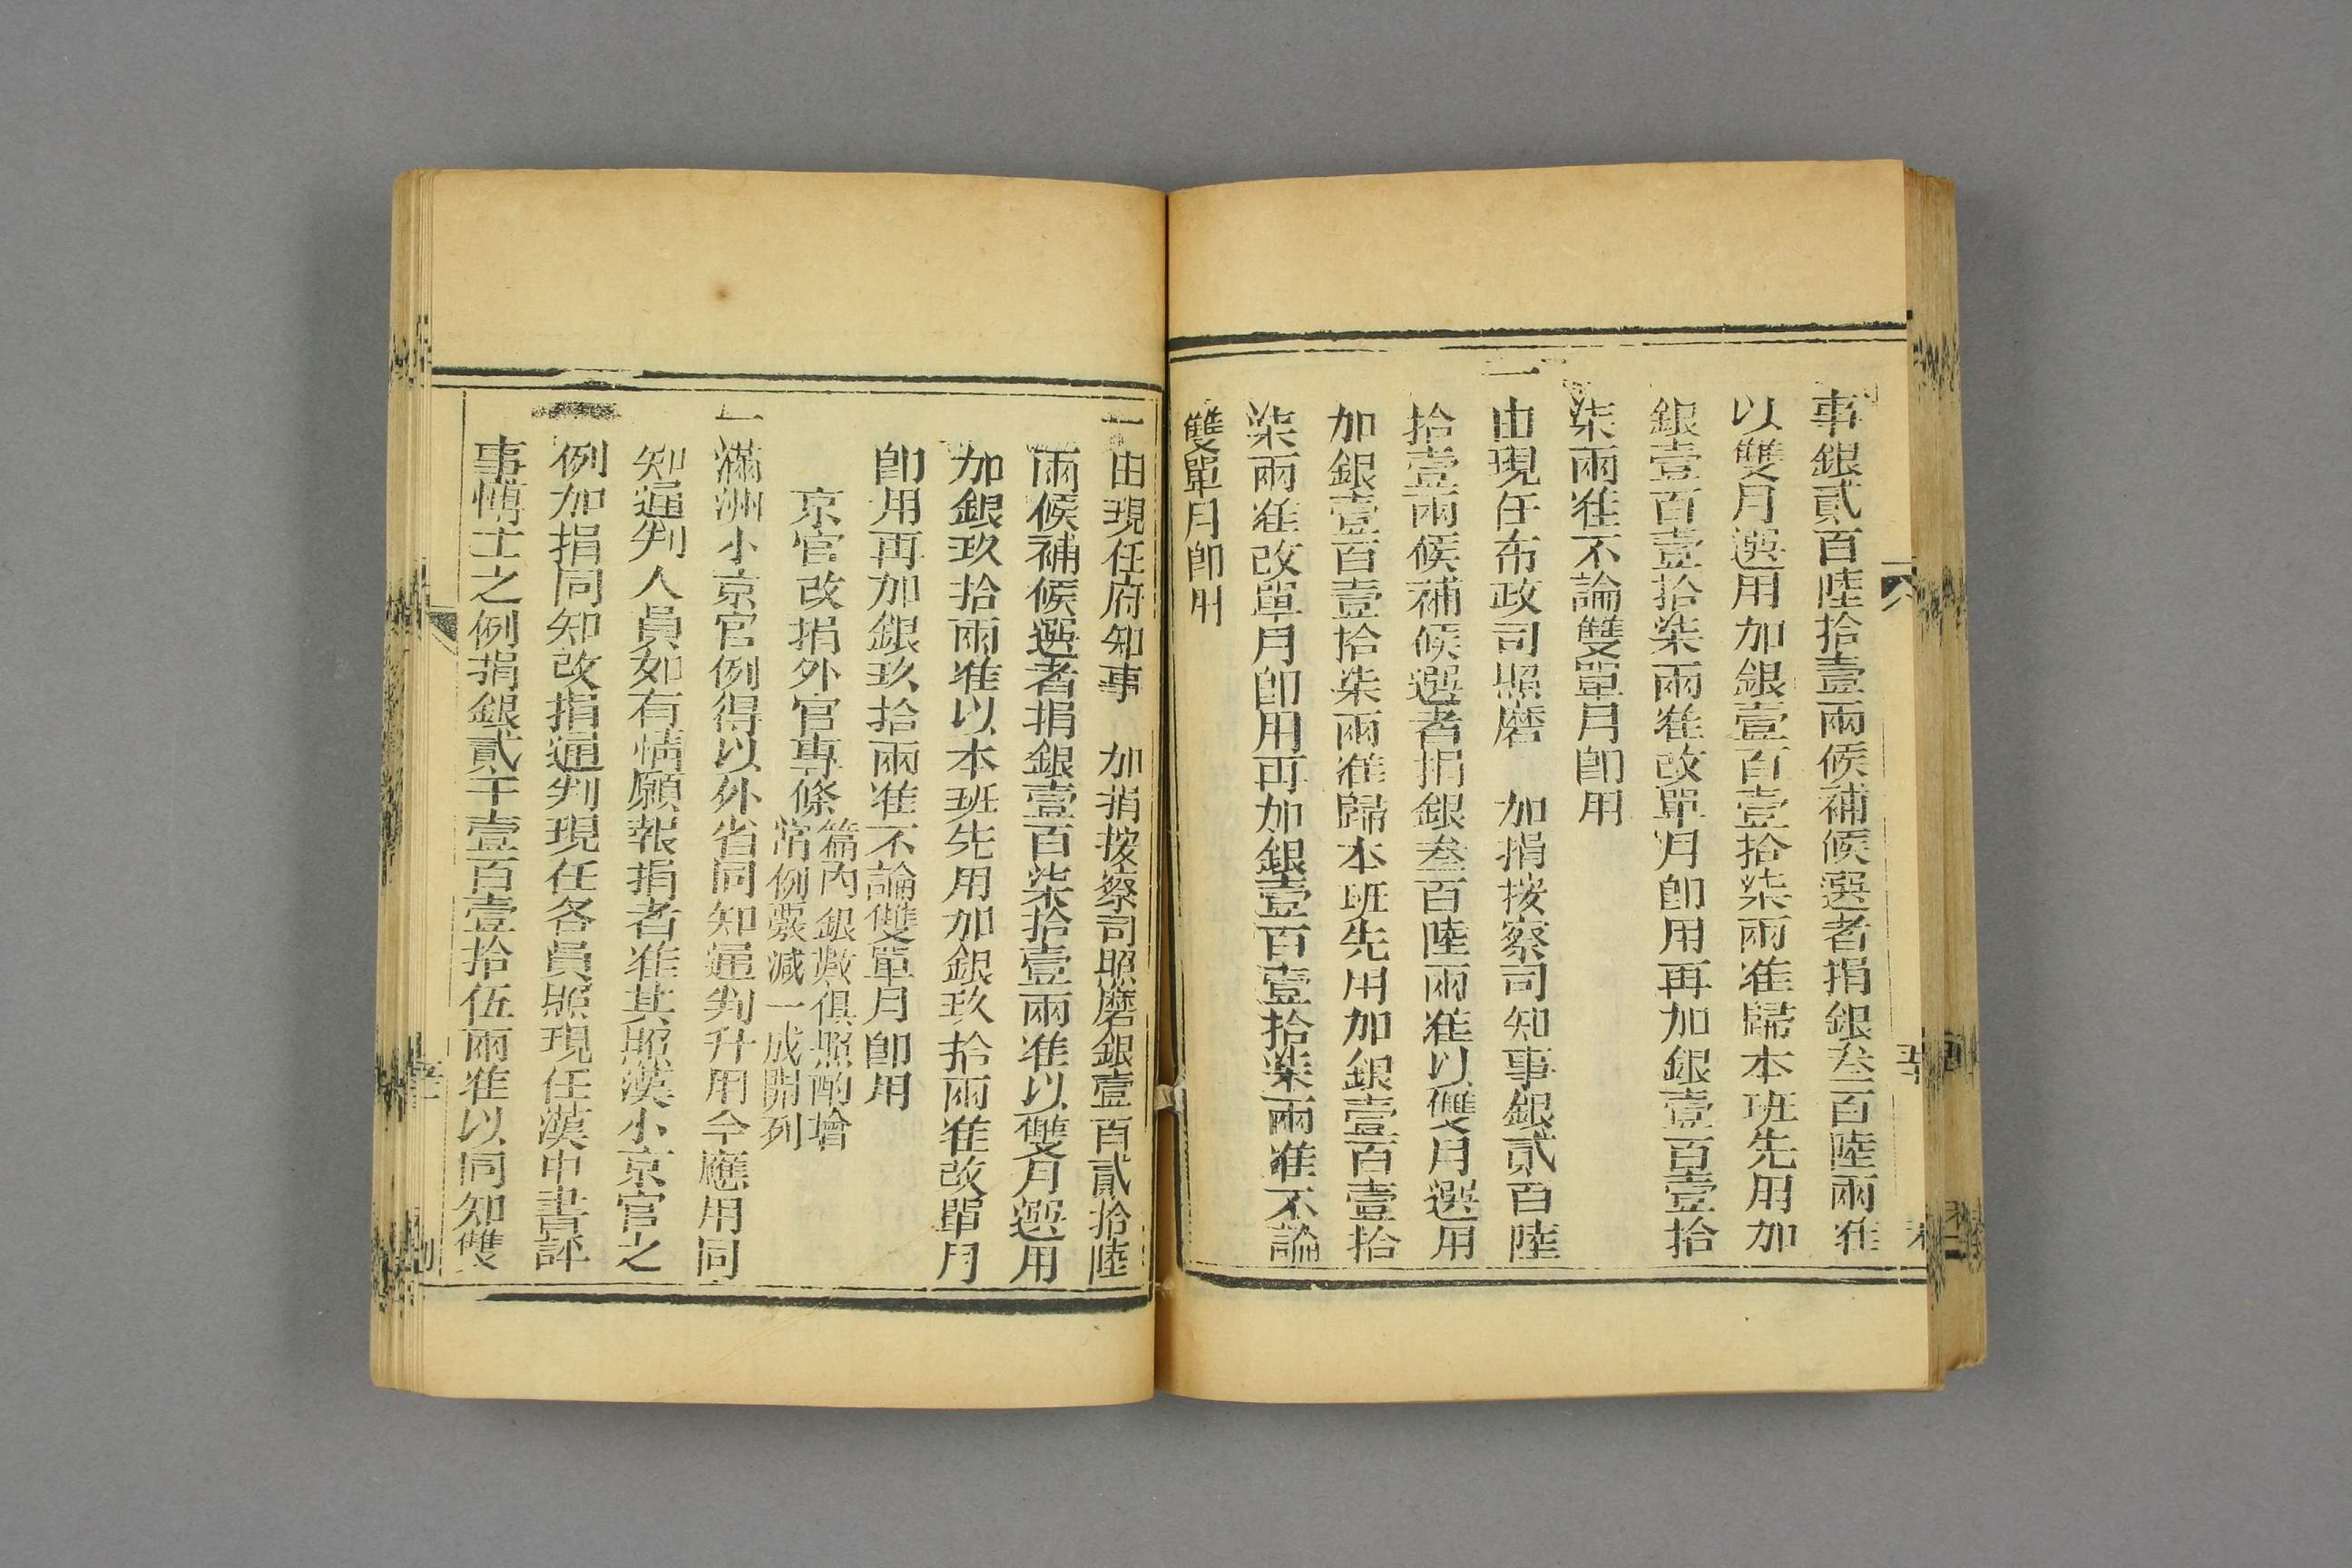 事銀貳百陸拾壹兩候補候選者捐銀叁百陸兩准
以雙月選用加銀壹百壹拾柒兩准歸本班先用加
銀壹百壹拾柒兩准改單月卽用再加銀壹百壹拾
柒兩准不論雙單月卽用
一由現任布政司照磨　加捐按察司知事銀貳百陸
拾壹兩候補候選者捐銀叁百陸兩准以雙月選用
加銀壹百壹拾柒兩准歸本班先用加銀壹百壹拾
柒兩准改單月卽用再加銀壹百壹拾柒兩准不論
雙單月卽用
一由現任府知事　加捐按察司照磨銀壹百貳拾陸
兩候補候選者捐銀壹百柒拾壹兩准以雙月選用
加銀玖拾兩准以本班先用加銀玖拾兩准改單月
卽用再加銀玖拾兩准不論雙單月卽用
京官改捐外官專條
篇內銀數俱照酌增
常例覈減一成開列
一滿洲小京官例得以外省同知通判升用今應用同
知通判人員如有情願報捐者准其照漢小京官之
例加捐同知改捐通判現任各員照現任漢中書評
事博士之例捐銀貳千壹百壹拾伍兩准以同知雙